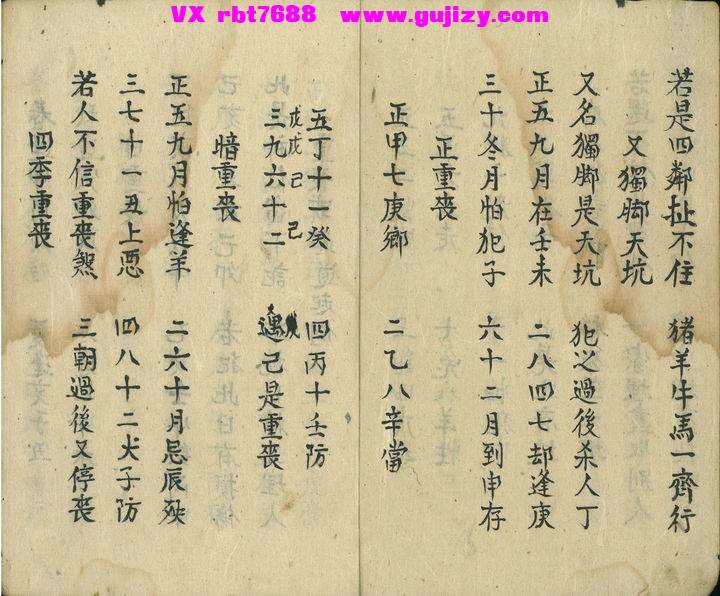 VX rbt7688 www.gujizy.com
若是四鄰扯不住 猪羊牛馬一齊行
又獨脚天坑
又名獨脚是天坑 犯之過後杀人丁
正五九月在壬未 二八四七却逢庚
三十冬月怕犯子 六十二月到申存
正重喪
正甲七庚鄉 二乙八辛當
五丁十一癸 四丙十壬防
戊戌己己
三九六十二 遇己是重喪
暗重喪
正五九月怕逢羊 二六十月忌辰殃
三七十一丑上恶 四八十二犬子防
若人不信重喪煞 三朝過後又停喪
四季重喪